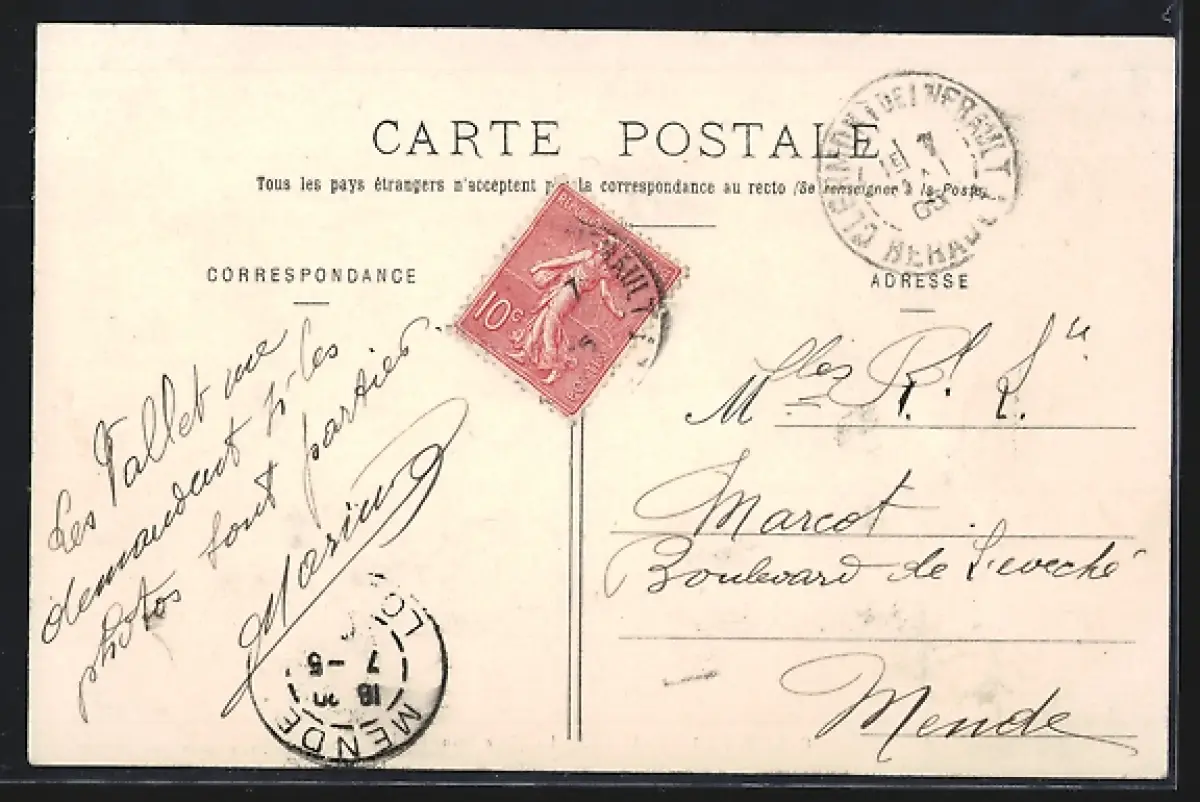 CARTE POSTALE
Tous les pays étrangers n'acceptent la correspondance au recto (Se renseigner à la Poste
CORRESPONDANCE
ADRESSE
10c
Les Vallet me
demandent si les
photos sont parties.
Marius
Mlles
Marcot
Boulevard de L'eveché
Mende
CLERMONT DE L'HERAULT
HERAULT
MENDE
18
7 - 5